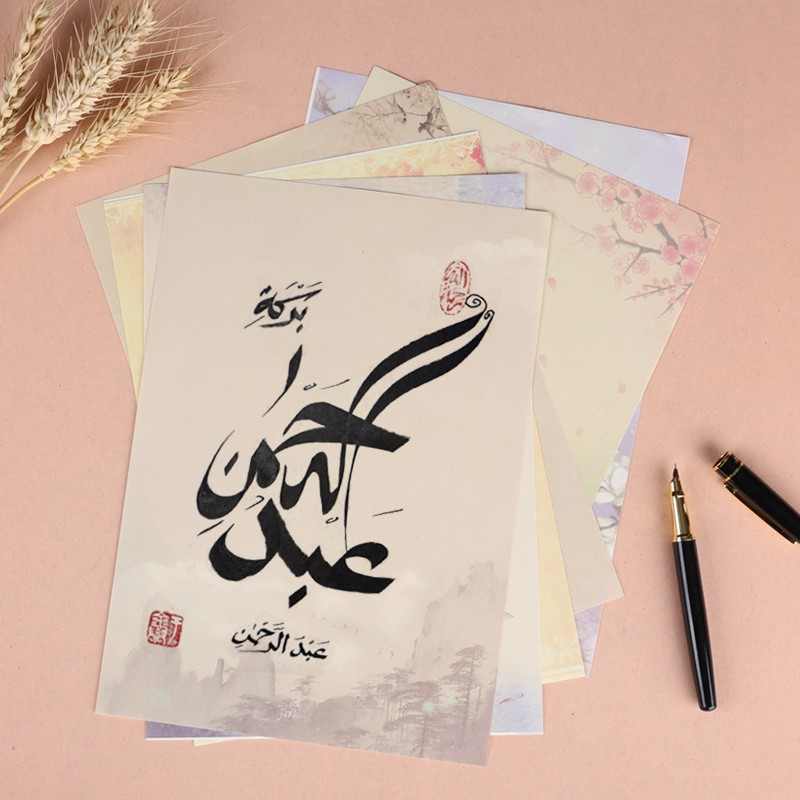 بَرَكَة
عَبْدُ الرَّحْمٰنِ
عَبْدَ الرَّحْمٰنِ